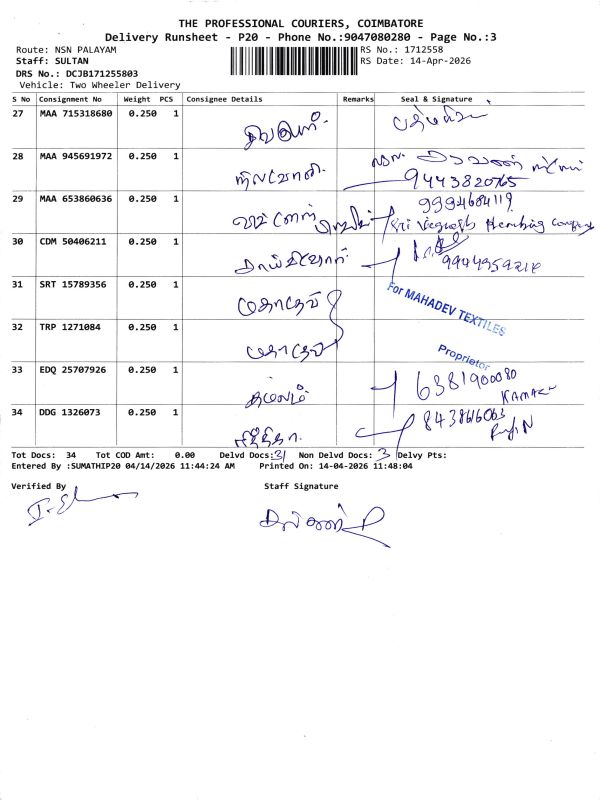 THE PROFESSIONAL COURIERS, COIMBATORE
Delivery Runsheet - P20 - Phone No.:9047080280 - Page No.:3
Route: NSN PALAYAM RS No.: 1712558
Staff: SULTAN RS Date: 14-Apr-2026
DRS No.: DCJB171255803
Vehicle: Two Wheeler Delivery
S No Consignment No Weight PCS Consignee Details Remarks Seal & Signature
27 MAA 715318680 0.250 1
28 MAA 945691972 0.250 1
9443820765
29 MAA 653860636 0.250 1 9994684119
Sri Vegnesh Hembing Company
30 CDM 50406211 0.250 1
9944959214
31 SRT 15789356 0.250 1 மகாதேவ்
For MAHADEV TEXTILES
32 TRP 1271084 0.250 1 மகாதேவ்
Proprietor
33 EDQ 25707926 0.250 1 கமலம் 6381900080
34 DDG 1326073 0.250 1 8438616063
Tot Docs: 34 Tot COD Amt: 0.00 Delvd Docs: 31 Non Delvd Docs: 3 Delvy Pts:
Entered By :SUMATHIP20 04/14/2026 11:44:24 AM Printed On: 14-04-2026 11:48:04
Verified By Staff Signature